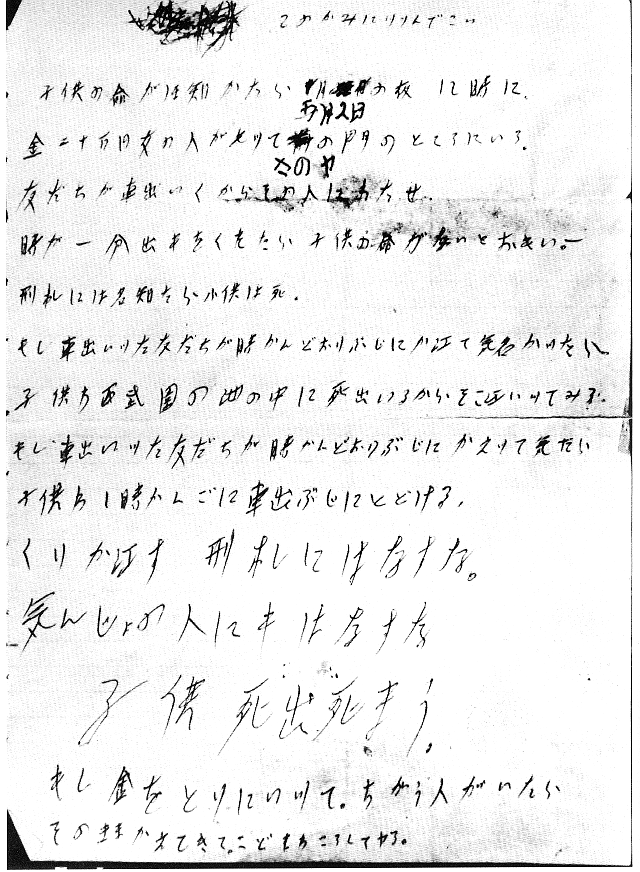 このかみにつつんでこい
子供の命がほ知かたら 五月2日の夜12時に、
金二十万円女の人がもツて さのヤの門のところにいろ。
友だちが車出いくからその人にわたせ。
時が一分出もをくれたら子供の命がないとおもい。ー
刑札には名知たら小供は死。
もし車出いツた友だちが時かんどおりぶじにか江て気名かツたら
子供わ西武園の池の中に死出いるからそこ江いツてみろ。
もし車出いツた友だちが時かんどおりぶじにかえツて気たら
子供わ1時かんごに車出ぶじにとどける。
くりか江す 刑札にはなすな。
気んじょの人にもはなすな
子供死出死まう。
もし金をとりにいツて。ちがう人がいたら
そのままかえてきて。こどもわころしてヤる。